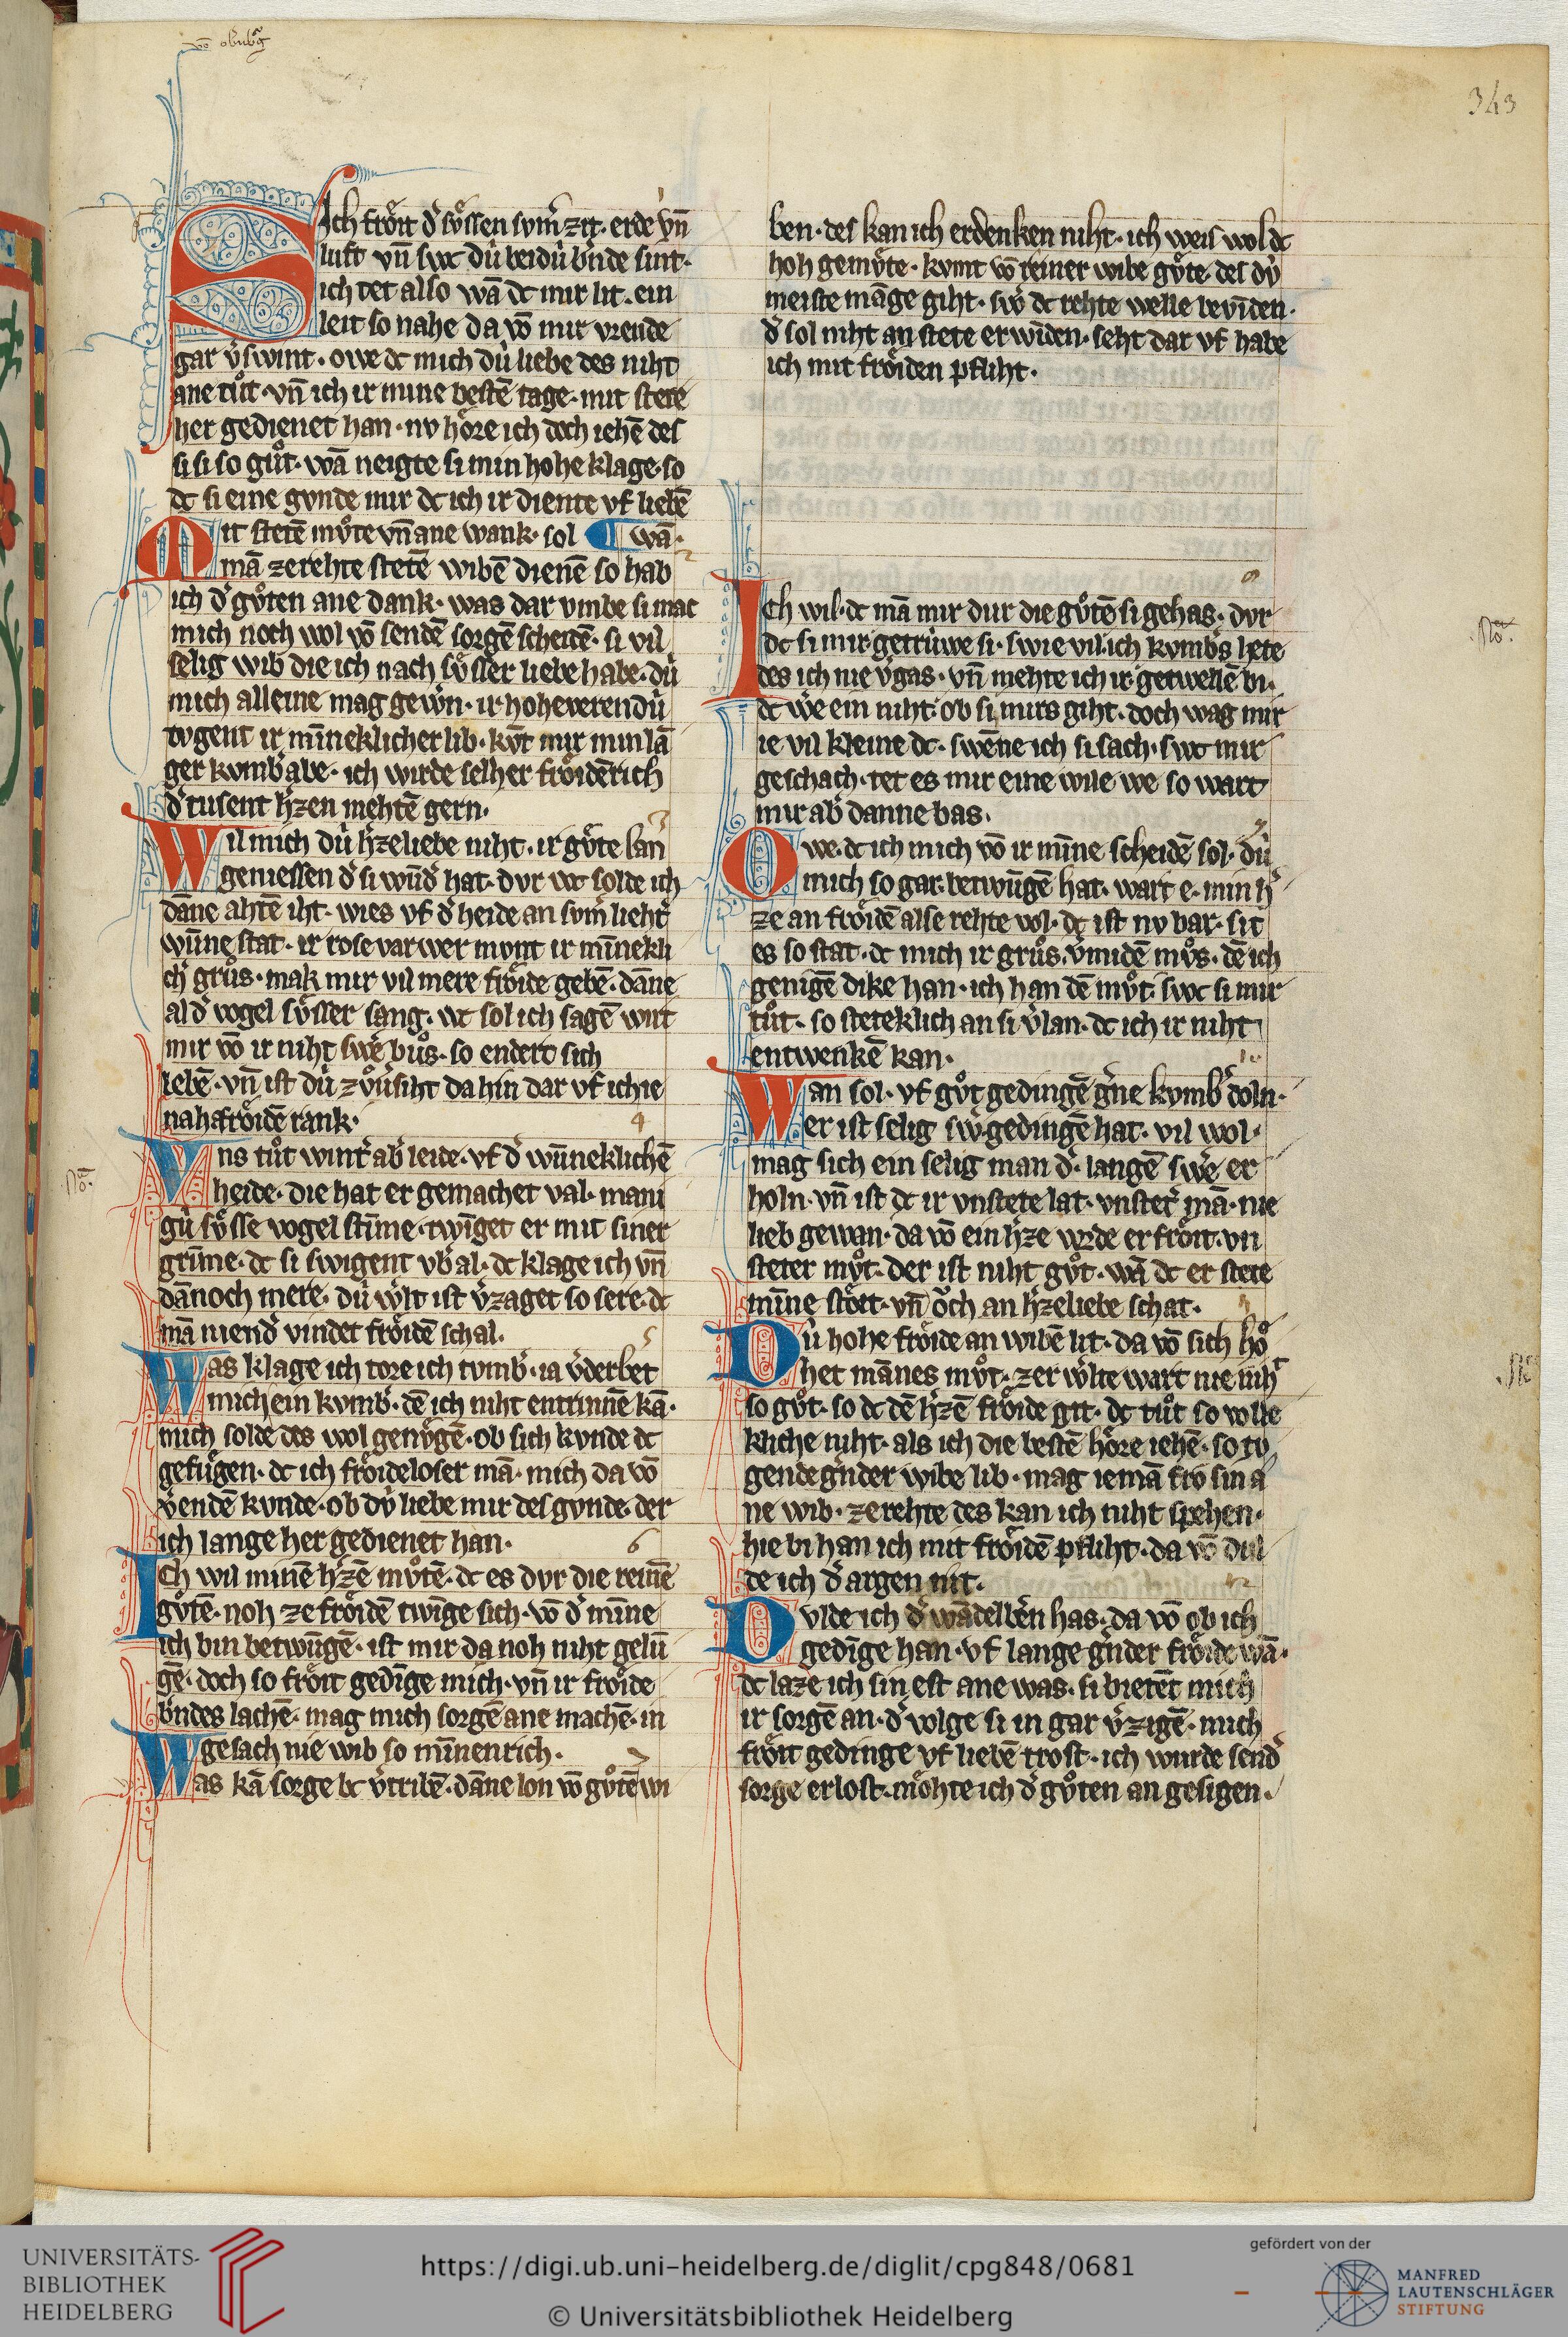 vō obnbg
343
Sich froͤit d̾ suͤssen sum̾ zit· erde vn̄
luft vn̄ swc dú beidú b̾nde sint·
ich tet also wā dc mir lit· ein
leit so nahe da vō mir vreude
gar v̾swint· owe dc mich dú liebe des niht
ane tuͦt· vn̄ ich ir mine bestē tage· mit stete
her gedienet han· nv hoͤre ich doch iehē des
si si so guͦt· wā neigte si min hohe klage· so
dc si eine gvnde mir dc ich ir diente vf liebē
Mit stetē muͦte vn̄ ane wank· sol wā·
mā ze rehte stetē wibē dienē so hab
ich d̾ guͦten ane dank· was dar vmbe si mac
mich noch wol vō sendē sorgē scheidē· si vil
selig wib die ich nach suͤsser liebe habe· dú
mich alleine mag gew̾n· ir hohe werendú
tvgent ir mīneklicher lib· kv̄t mir min lā
ger kvmb̾ abe· ich wirde selher froͤidērich
d̾ tusent h̾zen mehtē gern·
Wil mich dú h̾zeliebe niht· ir guͤte lan
geniessen d̾ si wnd̾ hat· dvr wc solde ich
dāne ahtē iht· wies vf d̾ heide an svm̾ lieht̾
wūne stat· ir rosevarwer mvnt ir mīnekli
ch̾ gruͦs· mak mir vil mere froͤide gebē· dāne
al d̾ vogel suͤsser sang· wc sol ich sagē wirt
mir vō ir niht sw̾e buͦs· so endert sich
lebē· vn̄ ist dú zv̾uͤsiht da hin dar vf ich ie
nah froͤidē rank·
Vns tuͦt wint̾ ab̾ leide· vf d̾ wūneklichē
heide· die hat er gemachet val· mani
gú suͤsse vogel stīme· twīget er mit siner
grīme· dc si swigent vb̾al· dc klage ich vn̄
dānoch mere· dú w̾lt ist v̾zaget so sere· dc
mā niend̾ vindet froͤidē schal·
Was klage ich tore ich tvmb̾· ia v̾derbet
mich ein kvmb̾· dē ich niht entrinnē kā·
mich solde des wol genuͤgē· ob sich kvnde dc
gefuͤgen· dc ich froͤideloser mā· mich da vō
v̾endē kvnde· ob dv́ liebe mir des gvnde· der
ich lange her gedienet han·
Ich wil minē h̾zē muͦtē· dc es dvr die reinē
guͦtē· noh ze froͤidē twīge sich· vō d̾ mīne
ich bin betwūgē· ist mir da noh niht gelū
gē· doch so froͤit gedīge mich· vn̄ ir froͤide
b̾ndes lachē· mag mich sorgē ane machē· in
gesach nie wib so mīnenrich·
Was kā sorge bc v̾tribē· dāne lon vō guͦtē wi
ben· des kan ich erdenken niht· ich weis wol dc
hoh gemuͤte· kvmt vō reiner wibe guͤte· des dv́
meiste mānge giht· sw̾ dc rehte welle bevīden·
d̾ sol niht an stete erwīden· seht dar vf habe
ich mit froͤiden pfliht·
Ich wil· dc mā mir dur die guͦtē si gehas· dvr
dc si mir getrúwe si· swie vil ich kvmb̾s hete
des ich nie v̾gas· vn̄ mehte ich ir getwellē bi·
dc w̾e ein niht· ob si mirs giht· doch wag mir
ie vil kleine dc· swēne ich si sach· swc mir
geschach· tet es mir eine wile we so wart
mir ab̾ danne bas·
Owe· dc ich mich vō ir mīne scheidē sol· dú
mich so gar betwūgē hat· wart e· min h̾
ze an froͤidē alse rehte vol· dc ist nv bar· sit
es so stat· dc mich ir gruͦs· v̾midē muͦs· dē ich
genigē dike han· ich han dē muͦt· swc si mir
tuͦt· so steteklich an si v̾lan· dc ich ir niht
entwenkē kan·
Wan sol· vf guͦt gedingē g̾ne kvmb̾ doln·
er ist selig sw̾· gedingē hat· vil wol·
mag sich ein selig man d̾· langē sw̾e er
holn· vn̄ ist dc ir vnstete lat· vnstet̾ mā· nie
lieb gewan· da vō ein h̾ze w̾de erfroͤit· vn
steter muͦt· der ist niht guͦt· wā dc er stete
mīne stoͤrt· vn̄ oͮch an h̾zeliebe schat·
Dú hohe froͤide an wibē lit· da vō sich hoͤ
het mānes muͦt· zer w̾lte wart nie nih̾
so guͦt· so dc dē h̾zē froͤide git· dc tuͦt so volle
kliche niht· als ich die bestē hoͤre iehē· so tv
gende g̾nder wibe lib· mag iemā fro sin a
ne wib· ze rehte des kan ich niht spehen·
hie bi han ich mit froͤidē pfliht· da vō dul
de ich d̾ argen nit·
Dvlde ich d̾ wādelb̾en has· da vō ob ich
gedīge han· vf lange g̾nder froͤide wā·
dc laze ich sin est ane was· si bietēt mich
ir sorgē an· d̾ volge si in gar v̾zigē· mich
froͤit gedinge vf liebē trost· ich wurde send̾
sorge erlost· moͤhte ich d̾ guͦten an gesigen·
UNIVERSITÄTS-
BIBLIOTHEK
HEIDELBERG
https://digi.ub.uni-heidelberg.de/diglit/cpg848/0681
© Universitätsbibliothek Heidelberg
gefördert von der
MANFRED
LAUTENSCHLÄGER
STIFTUNG